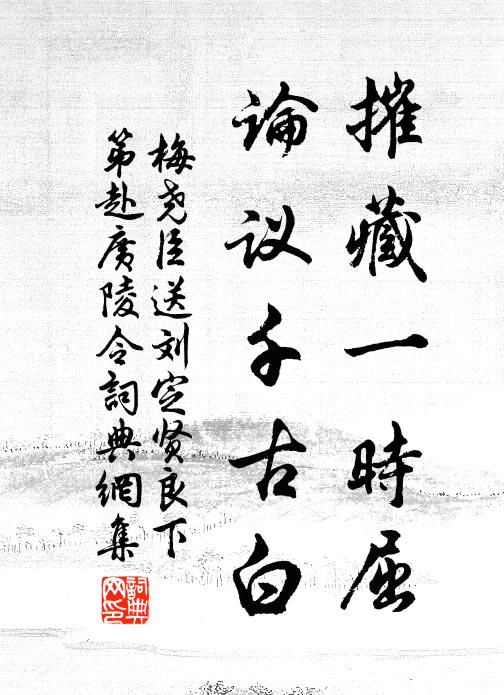 摧藏一時屈
論议千古白
梅尧臣送刘定贤良下
第赴廣陵令詞典網集
詞典網印